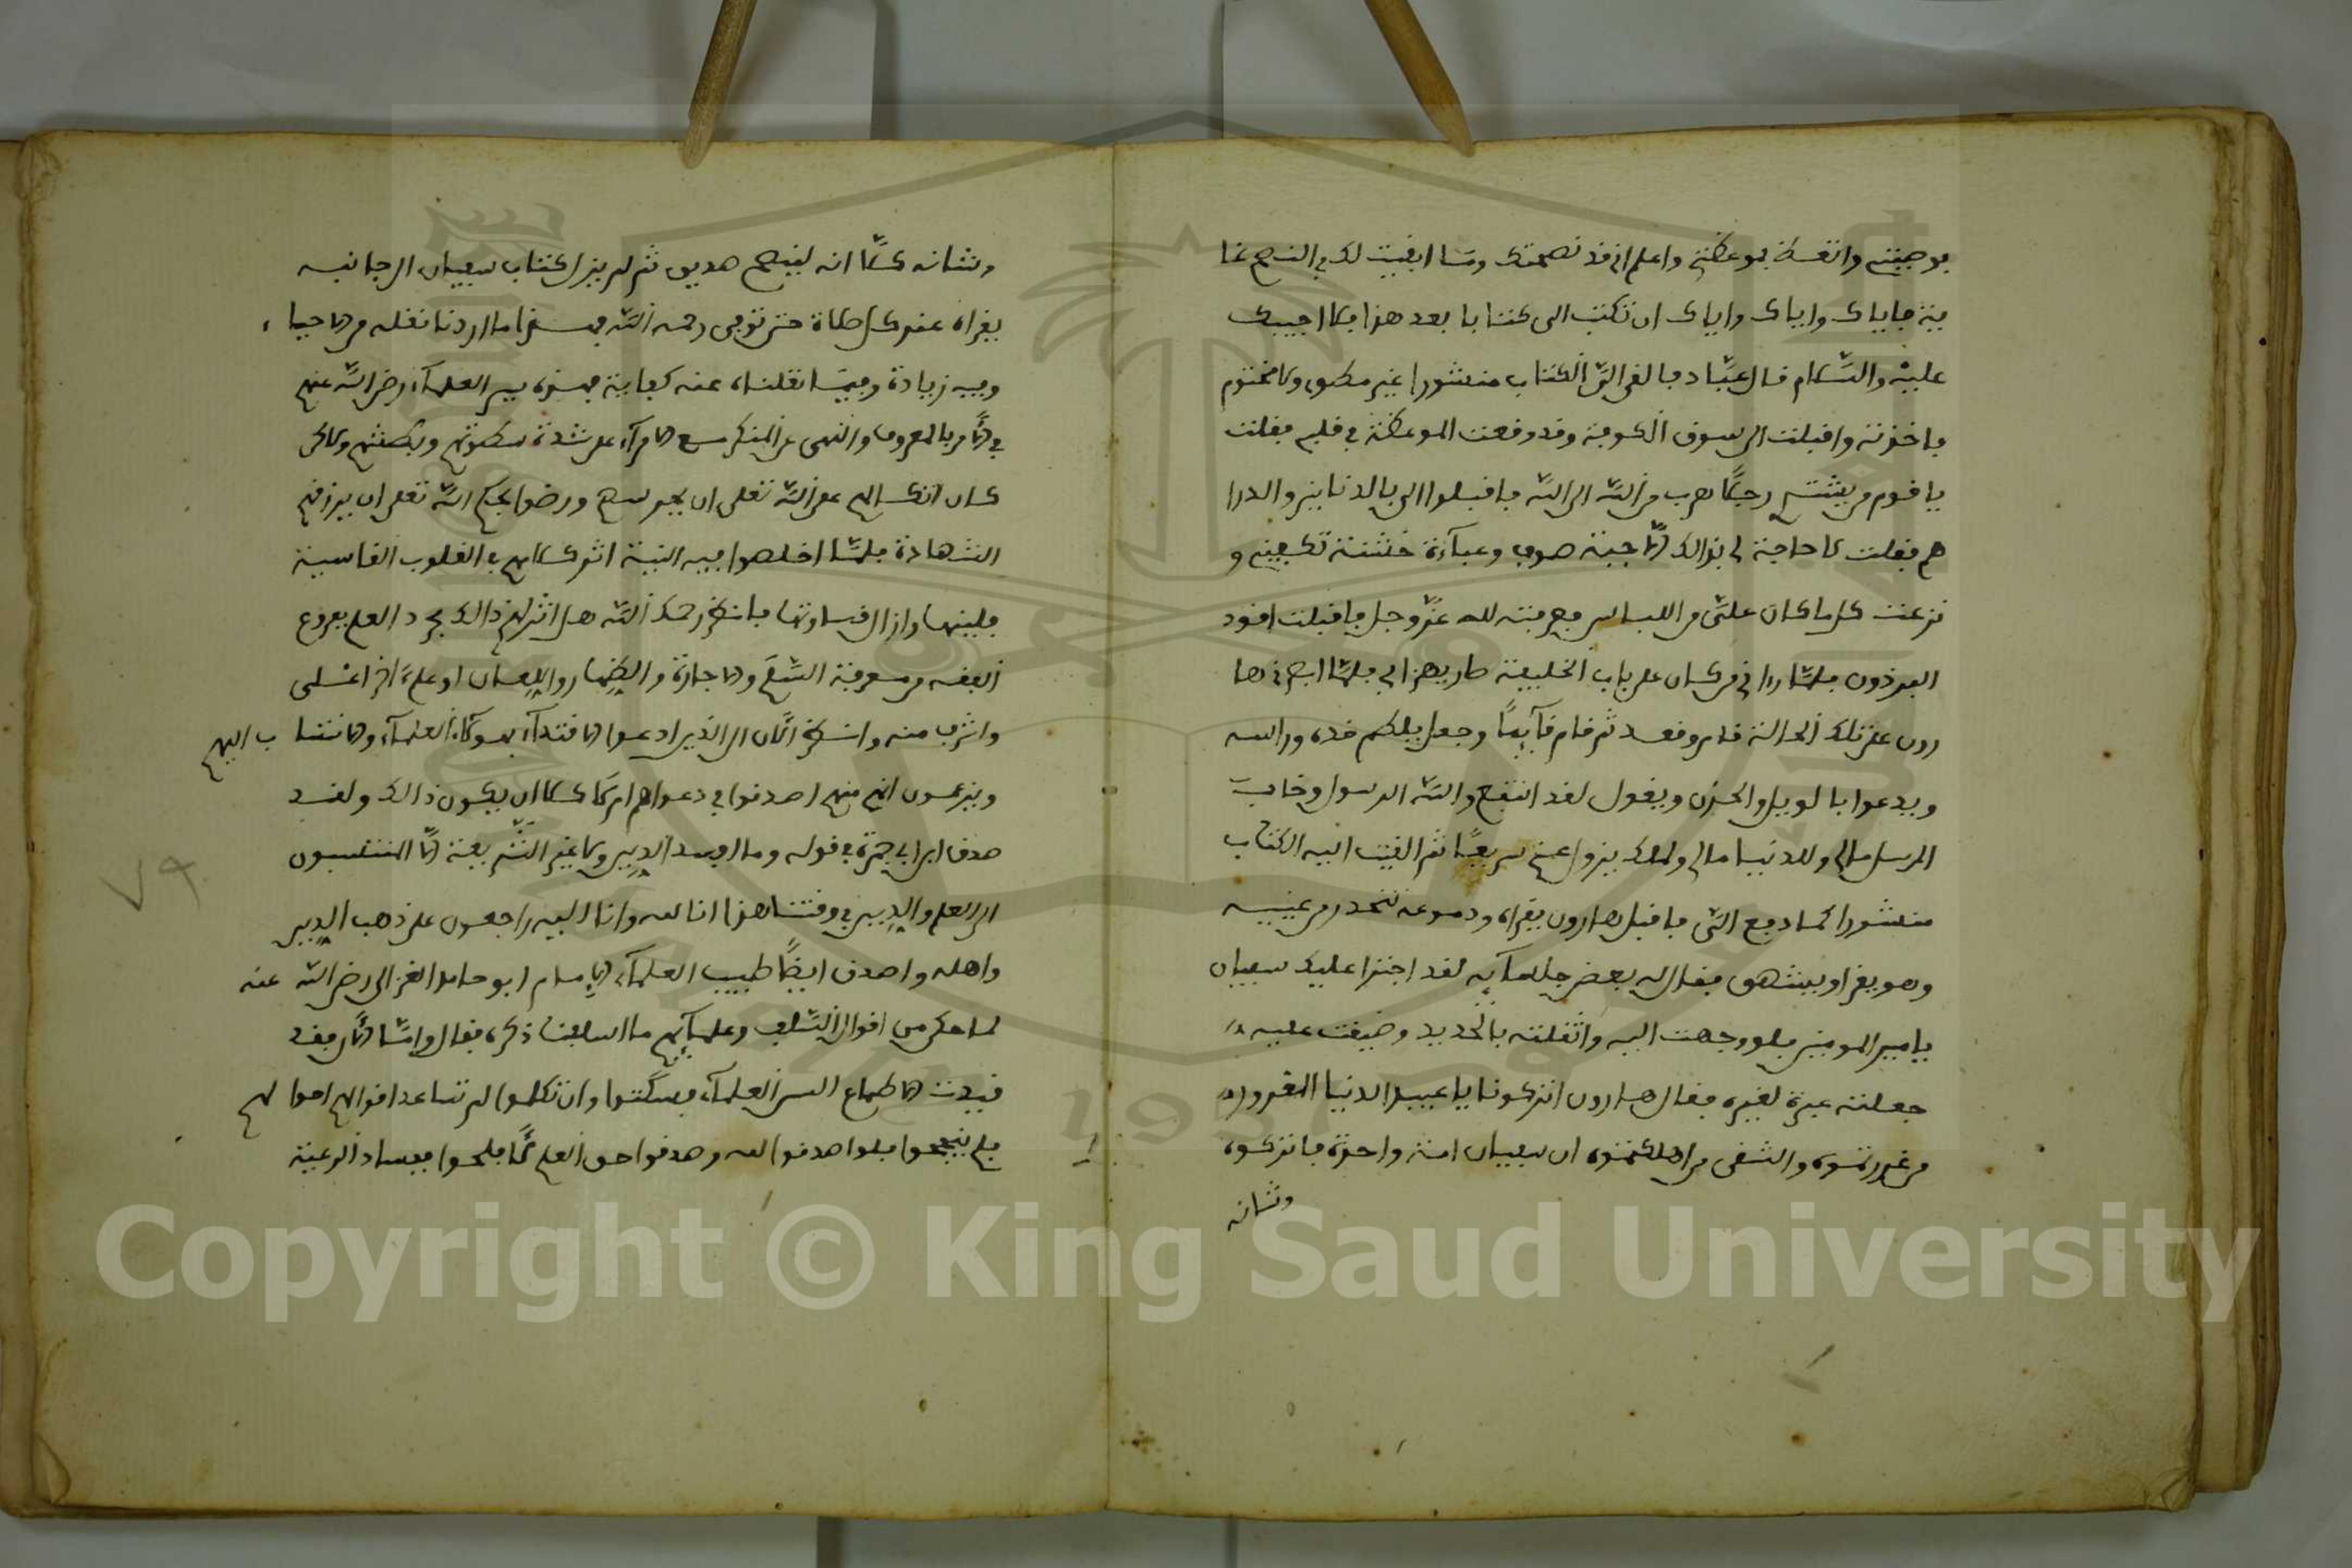 بوصيتي واتعظ بموعظتي واعلم اني قد نصحتك وما ابقيت لك في النصح غا
ية فاياك واياك واياك ان تكتب الي كتابا بعد هذا فلا اجيبك
عليه والسلام قال عباد فالقى الي الكتاب منشورا غير مطوي ولا مختوم
فاخذته واقبلت الى سوق الكوفة وقد وقعت الموعظة في قلبي فقلت
يا قوم من يشتري رجلا هرب من الله الى الله فاقبلوا الي بالدنانير والدرا
هم فقلت لا حاجة لي بذالك الا جبة صوف وعباءة خشنة تكفيني و
نزعت كل ما كان علي من اللباس فصرفته لله عز وجل فاقبلت اقود
البرذون فلما راني من كان على باب الخليفة طار يهزا بي فلما ابصرني ها
رون على تلك الحالة قام وقعد ثم قام قائما وجعل يلطم خده وراسه
ويدعوا بالويل والحزن ويقول لقد انتفع والله الرسول وخاب
المرسل مالي وللدنيا مالي ولملك يزول عني سريعا ثم القيت اليه الكتاب
منشورا كما دفع الي فاقبل هارون يقراه ودموعه تتحدر من عينيه
وهو يقرا ويشهق فقال له بعض جلسائه لقد اجترا عليك سفيان
يا امير المومنين فلو وجهت اليه واثقلته بالحديد وضيقت عليه
جعلته عبرة لغيره فقال هارون اتركونا يا عبيد الدنيا المغرور
من غررتموه والشقي من اهلكتموه ان سفيان امة واحدة فاتركوه
وشانه
وشانه كلا انه لنصح صديق ثم لم يزل كتاب سفيان الى جانبه
يقراه عند كل صلاة حتى توفي رحمه الله فهذا ما اردنا نقله من الاحياء
وفيه زيادة وفيما نقلناه عنه كفاية فهذه سير العلماء رضي الله عنهم
في الامر بالمعروف والنهي عن المنكر مع الامراء على شدة سطوتهم وبطشتهم ولاكن
كان اتكالهم على الله تعلى ان يحرسهم ورضوا بحكم الله تعلى ان يرزقهم
الشهادة فلما اخلصوا فيه النية اثر كلامهم في القلوب القاسية
فلينها وازال قساوتها فانظر رحمك الله هل اثر لهم ذالك بمجرد العلم بفروع
الفقه من معرفة السلم والاجارة والظهار واللعان او على اخر اعلى
واشرف منه وانظر الان الى الذين ادعوا الاقتداء بهولاء العلماء والانتساب اليهم
ويزعمون انهم منهم اصدقوا في دعواهم ام لا كلا ان يكون ذالك ولقد
صدق ابن ابي جمرة في قوله وما افسد الدين ولا غير الشريعة الا المنتسبون
الى العلم والدين في وقتنا هذا انا لله وانا اليه راجعون على ذهاب الدين
واهله واصدق ايضا طبيب العلماء الامام ابو حامد الغزالي رضي الله عنه
لما حكى من اقوال السلف وعلمائهم ما اسلفنا ذكره فقال واما الان فقد
قيدت الاطماع السن العلماء فسكتوا وان تكلموا لم تساعد اقوالهم احوالهم
فلم ينجحوا فلو صدقوا الله وصدقوا حق العلم لافلحوا ففساد الرعية
٧٩
Copyright © King Saud University
1957